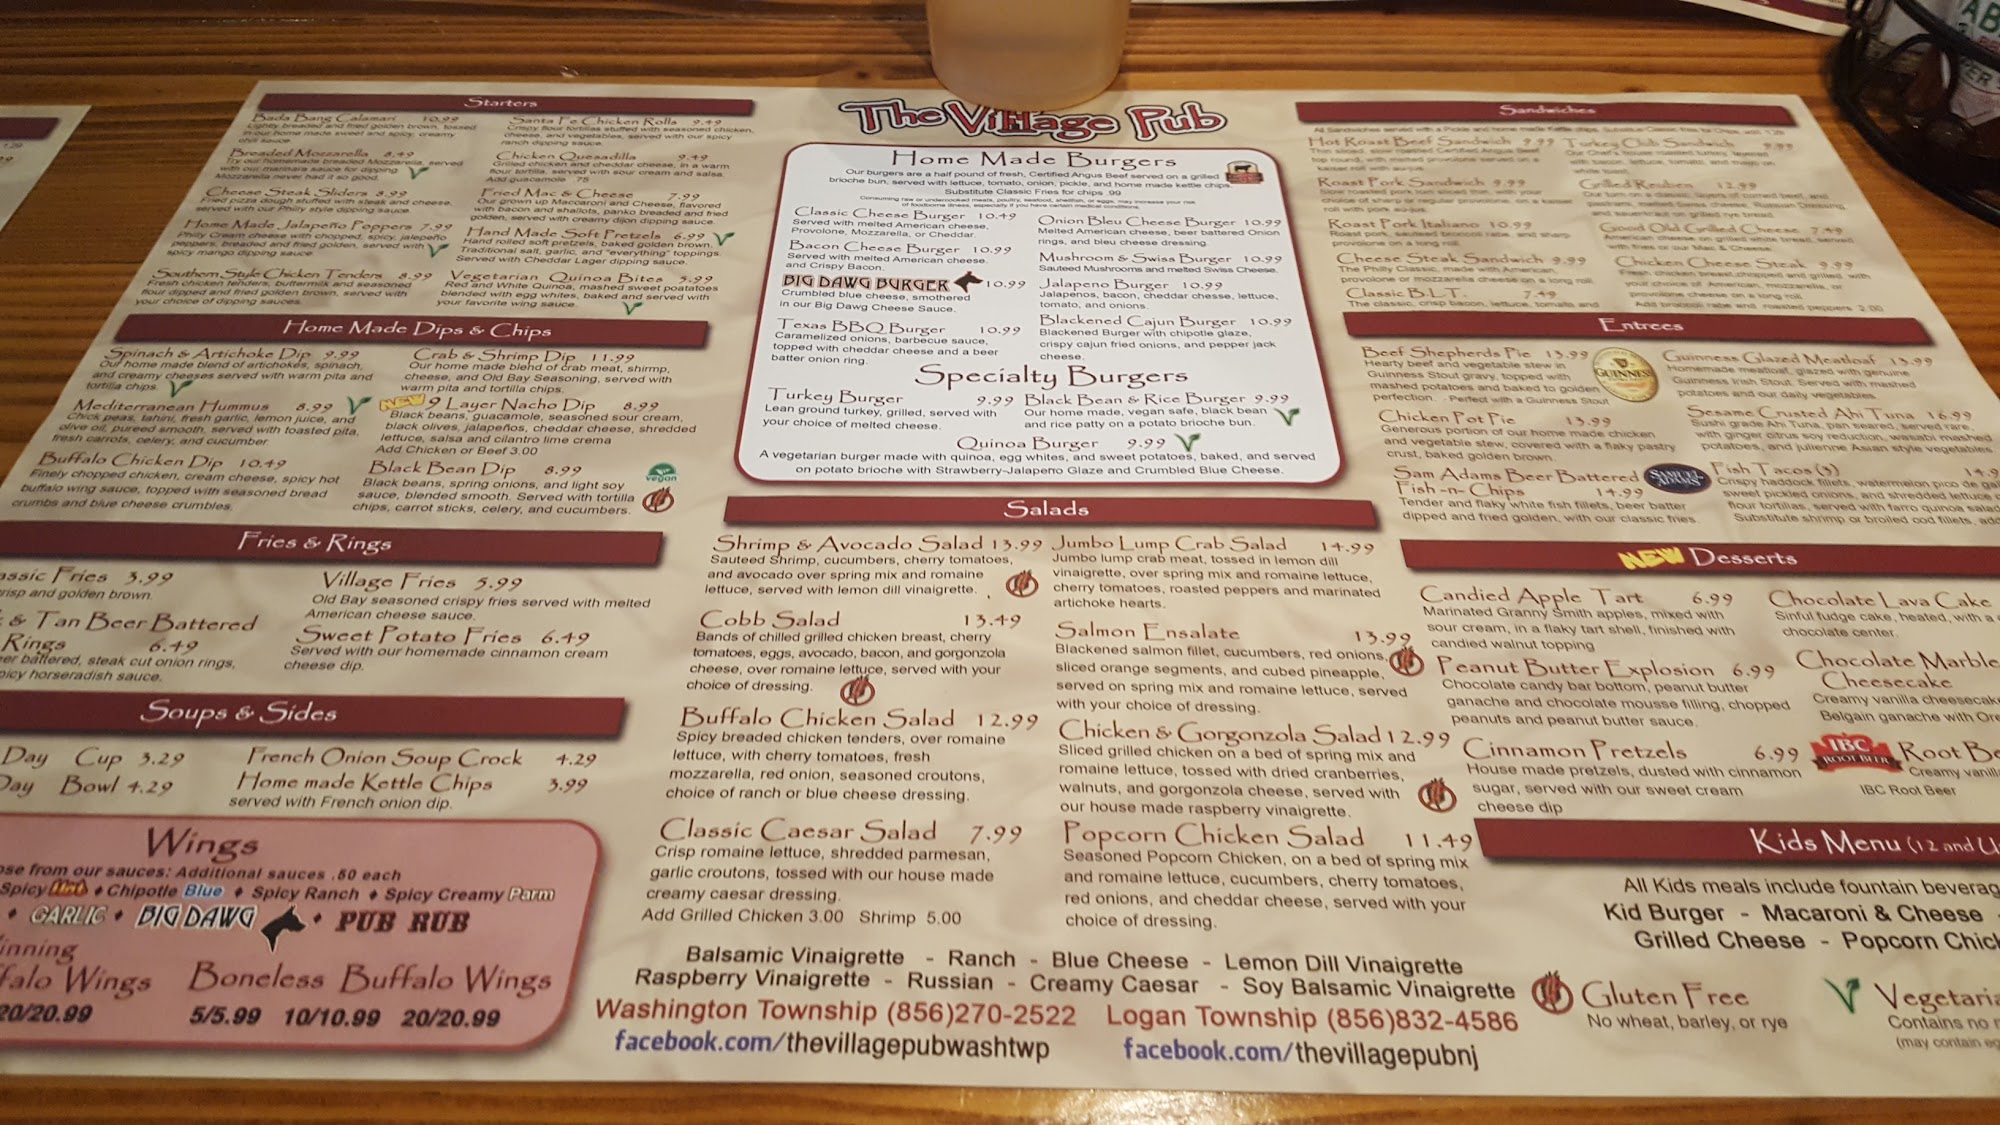 The Village Pub
Starters
Bada Bang Calamari 10.99
Lightly breaded and fried golden brown, tossed
in our home made sweet and spicy, creamy
chili sauce.
Breaded Mozzarella 8.49
Try our homemade breaded Mozzarella, served
with our marinara sauce for dipping
Mozzarella never had it so good.
Cheese Steak Sliders 8.99
Fried pizza dough stuffed with steak and cheese,
served with our Philly style dipping sauce.
Home Made Jalapeño Poppers 7.99
Philly Cream cheese with chopped, spicy, jalapeño
peppers, breaded and fried golden, served with
spicy mango dipping sauce
Southern Style Chicken Tenders 8.99
Fresh chicken tenders, buttermilk and seasoned
flour dipped and fried golden brown, served with
your choice of dipping sauces.
Santa Fe Chicken Rolls 9.49
Crispy flour tortillas stuffed with seasoned chicken,
cheese, and vegetables, served with our spicy
ranch dipping sauce.
Chicken Quesadilla 9.49
Grilled chicken and cheddar cheese, in a warm
flour tortilla, served with sour cream and salsa.
Add guacamole .75
Fried Mac & Cheese 7.99
Our grown up Macaroni and Cheese, flavored
with bacon and shallots, panko breaded and fried
golden, served with creamy dijon dipping sauce.
Hand Made Soft Pretzels 6.99
Hand rolled soft pretzels, baked golden brown.
Traditional salt, garlic, and "everything" toppings.
Served with Cheddar Lager dipping sauce.
Vegetarian Quinoa Bites 5.99
Red and White Quinoa, mashed sweet poatatoes
blended with egg whites, baked and served with
your favorite wing sauce.
Home Made Dips & Chips
Spinach & Artichoke Dip 9.99
Our home made blend of artichokes, spinach,
and creamy cheeses served with warm pita and
tortilla chips.
Mediterranean Hummus 8.99
Chick peas, tahini, fresh garlic, lemon juice, and
olive oil, pureed smooth, served with toasted pita,
fresh carrots, celery, and cucumber.
Buffalo Chicken Dip 10.49
Finely chopped chicken, cream cheese, spicy hot
buffalo wing sauce, topped with seasoned bread
crumbs and blue cheese crumbles.
Crab & Shrimp Dip 11.99
Our home made blend of crab meat, shirmp,
cheese, and Old Bay Seasoning, served with
warm pita and tortilla chips.
NEW 9 Layer Nacho Dip 8.99
Black beans, guacamole, seasoned sour cream,
black olives, jalapeños, cheddar cheese, shredded
lettuce, salsa and cilantro lime crema
Add Chicken or Beef 3.00
Black Bean Dip 8.99
Black beans, spring onions, and light soy
sauce, blended smooth. Served with tortilla
chips, carrot sticks, celery, and cucumbers.
vegan
Fries & Rings
assic Fries 3.99
risp and golden brown.
& Tan Beer Battered
Rings 6.49
er battered, steak cut onion rings,
picy horseradish sauce.
Village Fries 5.99
Old Bay seasoned crispy fries served with melted
American cheese sauce.
Sweet Potato Fries 6.49
Served with our homemade cinnamon cream
cheese dip.
Soups & Sides
Day Cup 3.29
Day Bowl 4.29
French Onion Soup Crock 4.29
Home made Kettle Chips 3.99
served with French onion dip.
Wings
ose from our sauces: Additional sauces .50 each
Spicy Hot ♦ Chipotle Blue ♦ Spicy Ranch ♦ Spicy Creamy Parm
♦ GARLIC ♦ BIG DAWG ♦ PUB RUB
inning
falo Wings
20/20.99
Boneless Buffalo Wings
5/5.99 10/10.99 20/20.99
Home Made Burgers
Our burgers are a half pound of fresh, Certified Angus Beef served on a grilled
brioche bun, served with lettuce, tomato, onion, pickle, and home made kettle chips.
Substitute Classic Fries for chips .99
Consuming raw or undercooked meats, poultry, seafood, shellfish, or eggs, may increase your risk
of foodborne illness, especially if you have certain medical conditions.
Classic Cheese Burger 10.49
Served with melted American cheese,
Provolone, Mozzarella, or Cheddar.
Bacon Cheese Burger 10.99
Served with melted American cheese.
and Crispy Bacon.
BIG DAWG BURGER 10.99
Crumbled blue cheese, smothered
in our Big Dawg Cheese Sauce.
Texas BBQ Burger 10.99
Caramelized onions, barbecue sauce,
topped with cheddar cheese and a beer
batter onion ring.
Onion Bleu Cheese Burger 10.99
Melted American cheese, beer battered Onion
rings, and bleu cheese dressing.
Mushroom & Swiss Burger 10.99
Sauteed Mushrooms and melted Swiss Cheese.
Jalapeno Burger 10.99
Jalapenos, bacon, cheddar chesse, lettuce,
tomato, and onions.
Blackened Cajun Burger 10.99
Blackened Burger with chipotle glaze,
crispy cajun fried onions, and pepper jack
cheese.
Specialty Burgers
Turkey Burger 9.99
Lean ground turkey, grilled, served with
your choice of melted cheese.
Black Bean & Rice Burger 9.99
Our home made, vegan safe, black bean
and rice patty on a potato brioche bun.
Quinoa Burger 9.99
A vegetarian burger made with quinoa, egg whites, and sweet potatoes, baked, and served
on potato brioche with Strawberry-Jalapeño Glaze and Crumbled Blue Cheese.
Salads
Shrimp & Avocado Salad 13.99
Sauteed Shrimp, cucumbers, cherry tomatoes,
and avocado over spring mix and romaine
lettuce, served with lemon dill vinaigrette.
Cobb Salad 13.49
Bands of chilled grilled chicken breast, cherry
tomatoes, eggs, avocado, bacon, and gorgonzola
cheese, over romaine lettuce, served with your
choice of dressing.
Buffalo Chicken Salad 12.99
Spicy breaded chicken tenders, over romaine
lettuce, with cherry tomatoes, fresh
mozzarella, red onion, seasoned croutons,
choice of ranch or blue cheese dressing.
Classic Caesar Salad 7.99
Crisp romaine lettuce, shredded parmesan,
garlic croutons, tossed with our house made
creamy caesar dressing.
Add Grilled Chicken 3.00 Shrimp 5.00
Jumbo Lump Crab Salad 14.99
Jumbo lump crab meat, tossed in lemon dill
vinaigrette, over spring mix and romaine lettuce,
cherry tomatoes, roasted peppers and marinated
artichoke hearts.
Salmon Ensalate 13.99
Blackened salmon fillet, cucumbers, red onions,
sliced orange segments, and cubed pineapple,
served on spring mix and romaine lettuce, served
with your choice of dressing.
Chicken & Gorgonzola Salad 12.99
Sliced grilled chicken on a bed of spring mix and
romaine lettuce, tossed with dried cranberries,
walnuts, and gorgonzola cheese, served with
our house made raspberry vinaigrette.
Popcorn Chicken Salad 11.49
Seasoned Popcorn Chicken, on a bed of spring mix
and romaine lettuce, cucumbers, cherry tomatoes,
red onions, and cheddar cheese, served with your
choice of dressing.
Balsamic Vinaigrette - Ranch - Blue Cheese - Lemon Dill Vinaigrette
Raspberry Vinaigrette - Russian - Creamy Caesar - Soy Balsamic Vinaigrette
Washington Township (856)270-2522 Logan Township (856)832-4586
facebook.com/thevillagepubwashtwp facebook.com/thevillagepubnj
Sandwiches
All Sandwiches served with a Pickle and home made Kettle chips. Substitute Classic fries for Chips, add 1.29
Hot Roast Beef Sandwich 9.99
Thin sliced, slow roasted Certified Angus Beef
top round, with melted provolone served on a
kaiser roll with au-jus.
Roast Pork Sandwich 9.99
Slow roasted pork loin, served with your
choice of sharp or regular provolone, on a kaiser
roll with pork au-jus.
Roast Pork Italiano 10.99
Roast pork, sauteed broccoli rabe, and sharp
provolone on a long roll.
Cheese Steak Sandwich 9.99
The Philly Classic, made with American,
provolone or mozzarella cheese on a long roll.
Classic B.L.T. 7.49
The classic, crisp bacon, lettuce, tomato and
Turkey Club Sandwich 9.99
Our Chef's house roasted turkey, layered
with bacon, lettuce, tomato, and mayo on
white toast.
Grilled Reuben 12.99
Our take on a deli classic, layers of corned beef, and
pastrami, melted Swiss cheese, Russian Dressing,
and sauerkraut on grilled rye bread.
Good Old Grilled Cheese 7.49
American cheese on grilled white bread, served
with fries or our Mac & Cheese.
Chicken Cheese Steak 9.99
Fresh chicken breast chopped and grilled, with
your choice of American, mozzarella, or
provolone cheese on a long roll.
Add broccoli rabe and roasted peppers 2.00
Entrees
Beef Shepherds Pie 13.99
Hearty beef and vegetable stew in
Guinness Stout gravy, topped with
mashed potatoes and baked to golden
perfection. - Perfect with a Guinness Stout
GUINNESS
Chicken Pot Pie 13.99
Generous portion of our home made chicken
and vegetable stew, covered with a flaky pastry
crust, baked golden brown.
Sam Adams Beer Battered
Fish -n- Chips 14.99
Tender and flaky white fish fillets, beer batter
dipped and fried golden, with our classic fries.
SAMUEL ADAMS
Guinness Glazed Meatloaf 13.99
Homemade meatloaf, glazed with genuine
Guinness Irish Stout. Served with mashed
potatoes and our daily vegetables.
Sesame Crusted Ahi Tuna 16.99
Sushi grade Ahi Tuna, pan seared, served rare.
with ginger citrus soy reduction, wasabi mashed
potatoes, and julienne Asian style vegetables.
Fish Tacos (3) 14.9
Crispy haddock fillets, watermelon pico de gal
sweet pickled onions, and shredded lettuce o
flour tortillas, served with farro quinoa salad
Substitute shrimp or broiled cod fillets, add
NEW Desserts
Candied Apple Tart 6.99
Marinated Granny Smith apples, mixed with
sour cream, in a flaky tart shell, finished with
candied walnut topping
Peanut Butter Explosion 6.99
Chocolate candy bar bottom, peanut butter
ganache and chocolate mousse filling, chopped
peanuts and peanut butter sauce.
Cinnamon Pretzels 6.99
House made pretzels, dusted with cinnamon
sugar, served with our sweet cream
cheese dip
Chocolate Lava Cake
Sinful fudge cake, heated, with a
chocolate center.
Chocolate Marble
Cheesecake
Creamy vanilla cheesecake
Belgain ganache with Ore
IBC ROOT BEER
Root Be
Creamy vanill
IBC Root Beer
Kids Menu (12 and U
All Kids meals include fountain beverag
Kid Burger - Macaroni & Cheese -
Grilled Cheese - Popcorn Chick
Gluten Free
No wheat, barley, or rye
Vegetaria
Contains no
(may contain eg